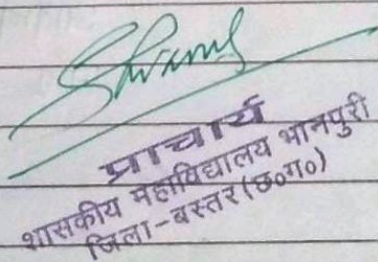 प्राचार्य
शासकीय महाविद्यालय भानपुरी
जिला-बस्तर (छ०ग०)